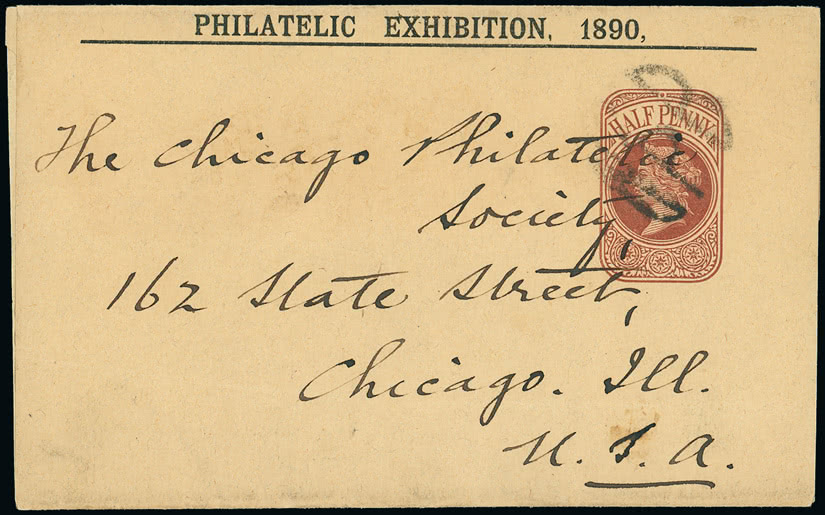 PHILATELIC EXHIBITION, 1890,
HALF PENNY
The Chicago Philatelic
Society,
162 State Street,
Chicago. Ill.
U. S. A.